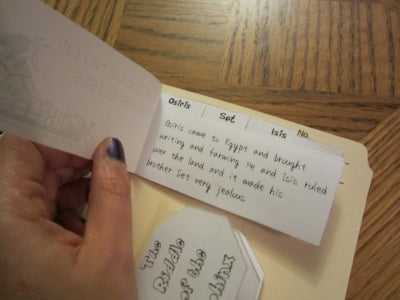 LEGEND OF
& ISIS
Osiris Set Isis
Osiris came to Egypt and brought
writing and farming. He and Isis ruled
over the land and it made his
brother Set very jealous
The
Riddle
of the